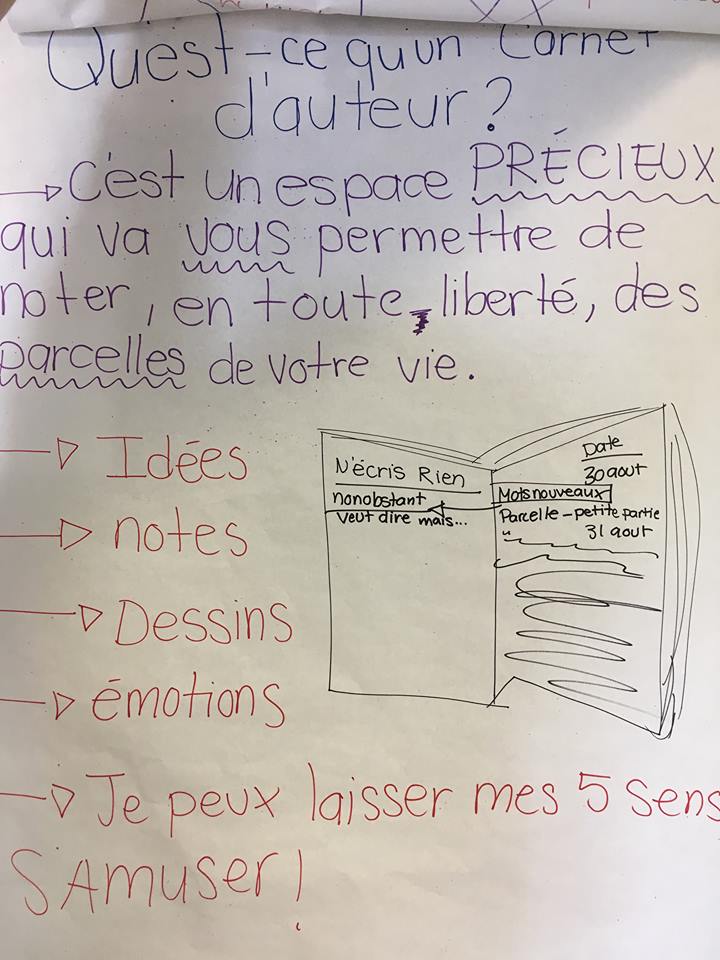 Qu'est-ce qu'un Carnet
d'auteur ?
C'est un espace PRÉCIEUX
qui va vous permettre de
noter, en toute liberté, des
parcelles de votre vie.
Idées
notes
Dessins
émotions
N'écris Rien
nonobstant
veut dire mais...
Date
30 aout
Mots nouveaux
Parcelle - petite partie
" 31 aout
Je peux laisser mes 5 sens
S'AMUSER!